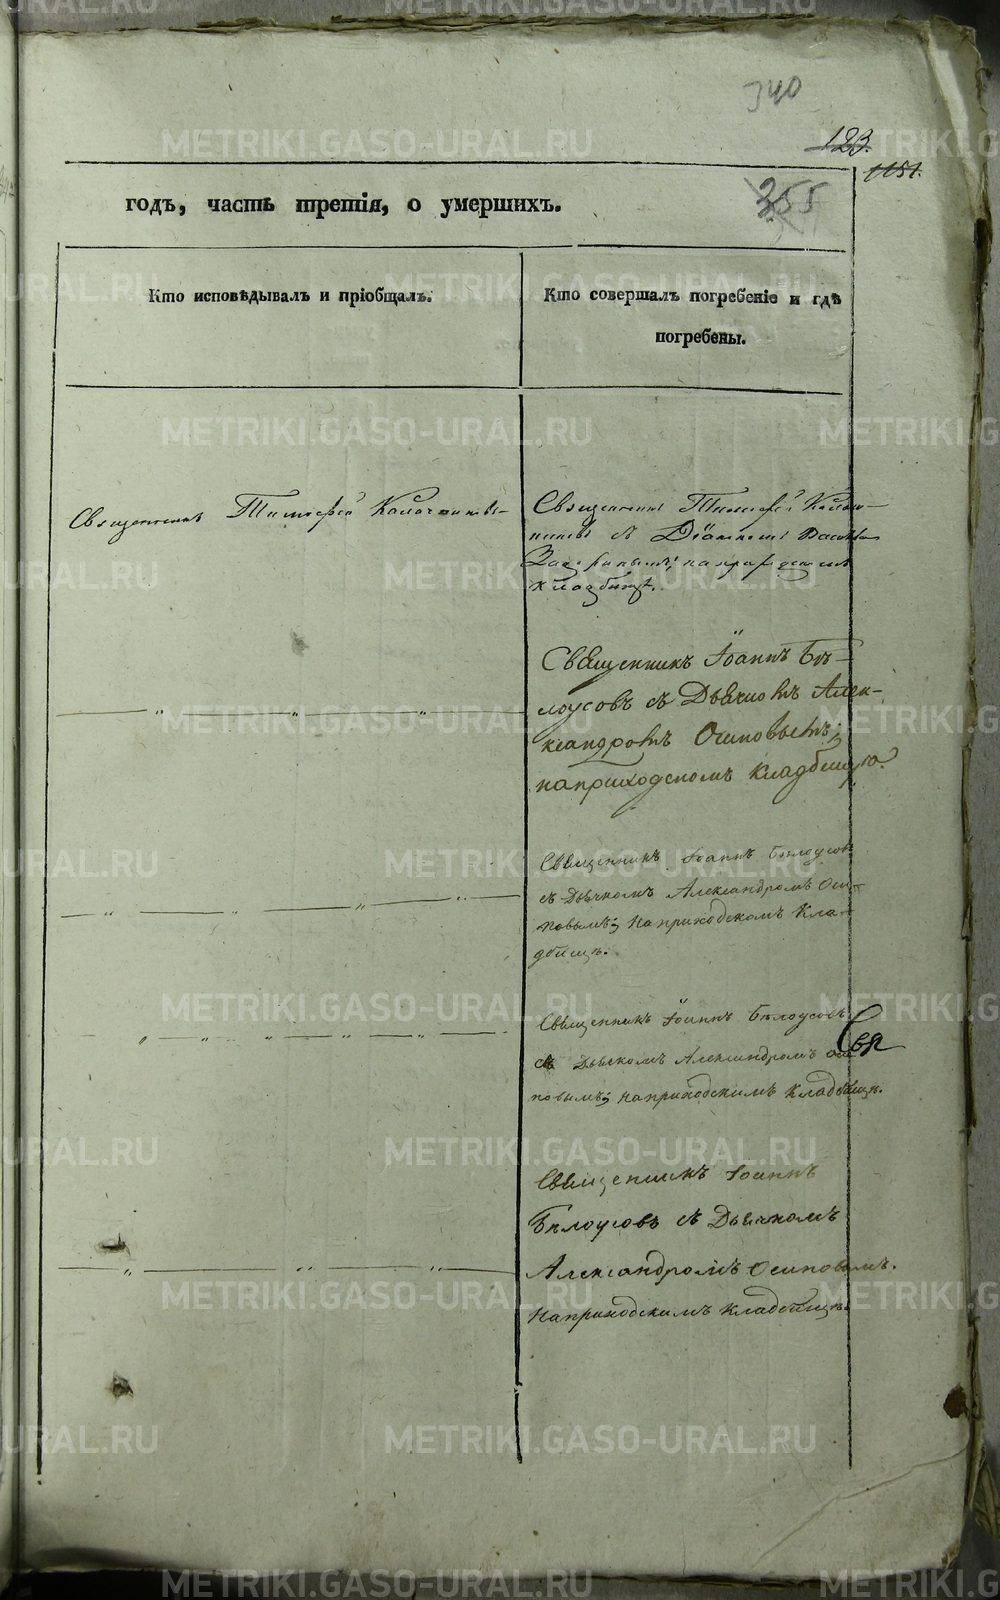 340
123.
1151.
годъ, часть третія, о умершихъ.
355
Кто исповѣдывалъ и пріобщалъ.
Кто совершалъ погребеніе и гдѣ
погребены.
Священникъ Тимофей
Священникъ Тимофей
съ Діакономъ
на приходскомъ
кладбищѣ.
Священникъ Іоаннъ Бѣ-
лоусовъ съ Дьячкомъ Алек-
сандромъ Осиповымъ;
на приходскомъ кладбищѣ.
Священникъ Іоаннъ Бѣлоусовъ
съ Дьячкомъ Александромъ Оси-
повымъ; на приходскомъ кла-
дбищѣ.
Священникъ Іоаннъ Бѣлоусовъ
съ Дьячкомъ Александромъ Оси
повымъ; на приходскимъ кладбищѣ.
Свя
Священникъ Іоаннъ
Бѣлоусовъ съ Дьячкомъ
Александромъ Осиповымъ.
На приходскимъ кладбищѣ.
METRIKI.GASO-URAL.RU